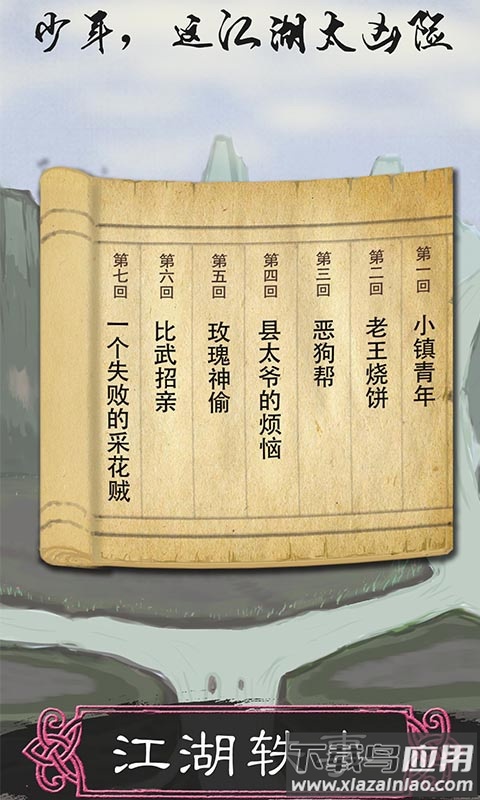 少年，这江湖太凶险
第一回 小镇青年
第二回 老王烧饼
第三回 恶狗帮
第四回 县太爷的烦恼
第五回 玫瑰神偷
第六回 比武招亲
第七回 一个失败的采花贼
江湖轶
下载鸟应用
www.xiazainiao.com